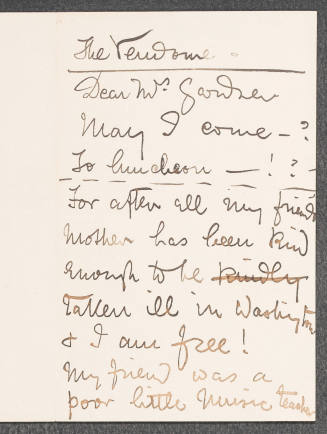 The Vendome.
Dear Mrs Gardner
May I come — ?
To luncheon — ! ? —
For after all my friend's
Mother has been kind
enough to be kindly
taken ill in Washington
& I am free!
My friend was a
poor little music teacher